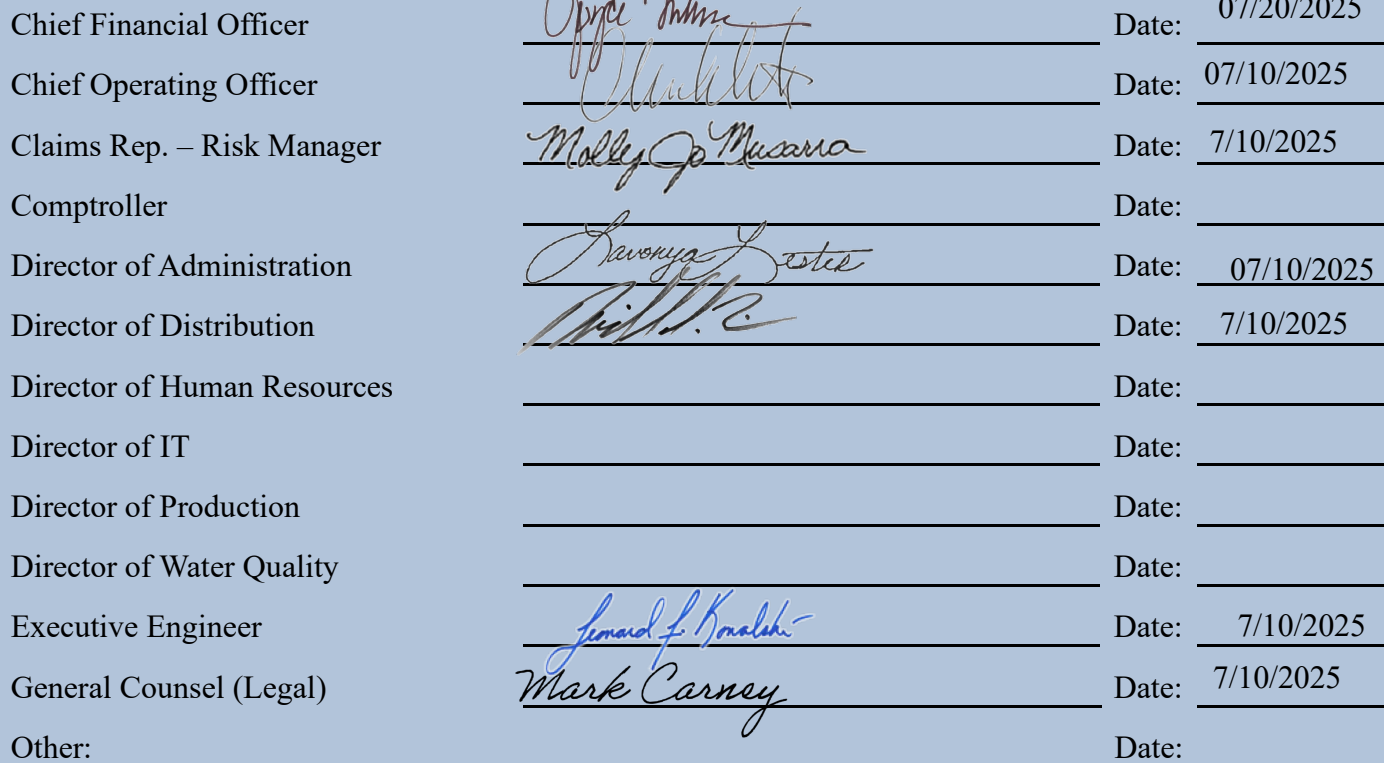 Chief Financial Officer Date: 07/20/2025
Chief Operating Officer Date: 07/10/2025
Claims Rep. – Risk Manager Molly Jo Musarra Date: 7/10/2025
Comptroller Date:
Director of Administration Lavonya Lester Date: 07/10/2025
Director of Distribution Date: 7/10/2025
Director of Human Resources Date:
Director of IT Date:
Director of Production Date:
Director of Water Quality Date:
Executive Engineer Leonard F. Kowalski Date: 7/10/2025
General Counsel (Legal) Mark Carney Date: 7/10/2025
Other: Date: